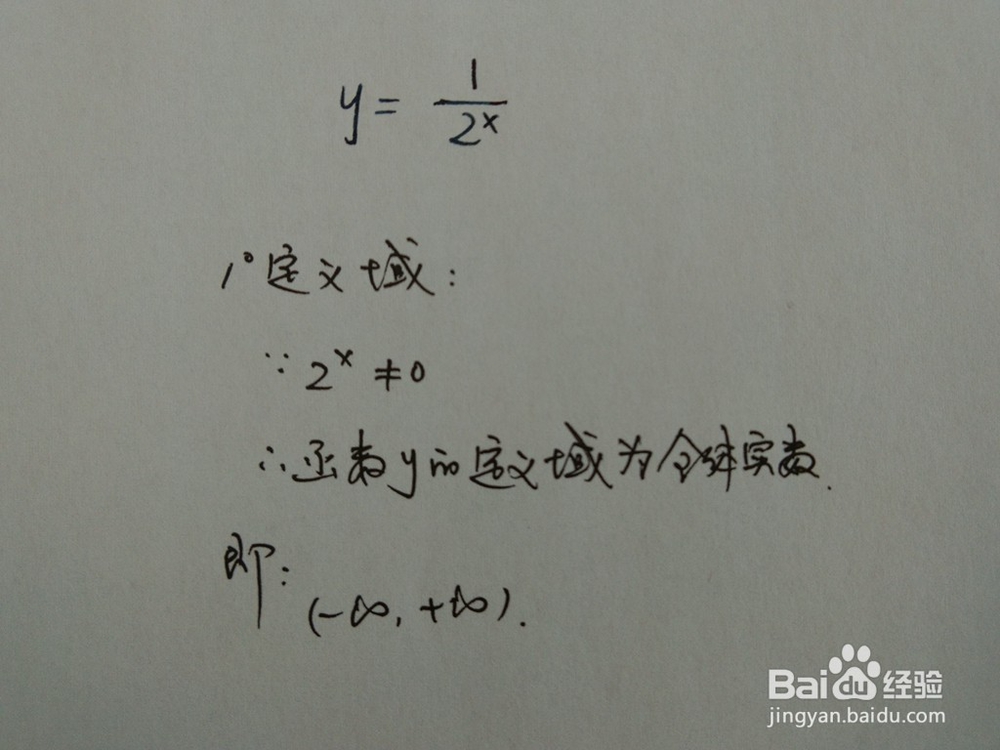 y = 1/2^x
1° 定义域：
∵ 2^x ≠ 0
∴ 函数y的定义域为全体实数.
即：
(-∞, +∞).
Baidu经验
jingyan.baidu.com